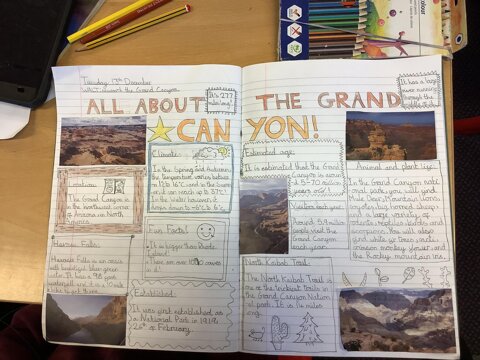 Tuesday 13th December
WALT: research the Grand Canyon.
ALL ABOUT THE GRAND
CANYON!
It's 277
miles long!
It has a large
river running
through the
Climate:
In the Spring and Autumn,
the temperature varies between
in the Summer
it can reach up to 37°C!
In the Winter however, it
drops down to -8°C to 6°C.
Location
The Grand Canyon is
in the northwest corner
of Arizona in North
America.
Havasu Falls:
Havasu Falls is an oasis
with beautiful blue green
water. It's a 98 foot
waterfall and it is a 10 mile
hike to get there.
Fun Facts!
It is bigger than Rhode
Island!
There are over 1000 caves
in it!
Established:
It was first established as
a National Park in 1919,
26th of February.
Estimated age:
It is estimated that the Grand
Canyon is around
5-70 million
years old!
Visitors each year:
Around 5.9 million
people visit the
Grand Canyon
each year.
North Kaibab Trail:
The North Kaibab Trail is
one of the trickiest trails in
the Grand Canyon National
park. It is 14 miles
long.
Animal and plant life:
In the Grand Canyon nati
onal park, you will find
Mule Deer, Mountain Lions,
coyotes, big horned sheep
and a large variety of
insects, reptiles, lizards and
scorpions. You will also
find white fir trees, cacti,
crimson monkey flower and
the Rocky mountain iris.